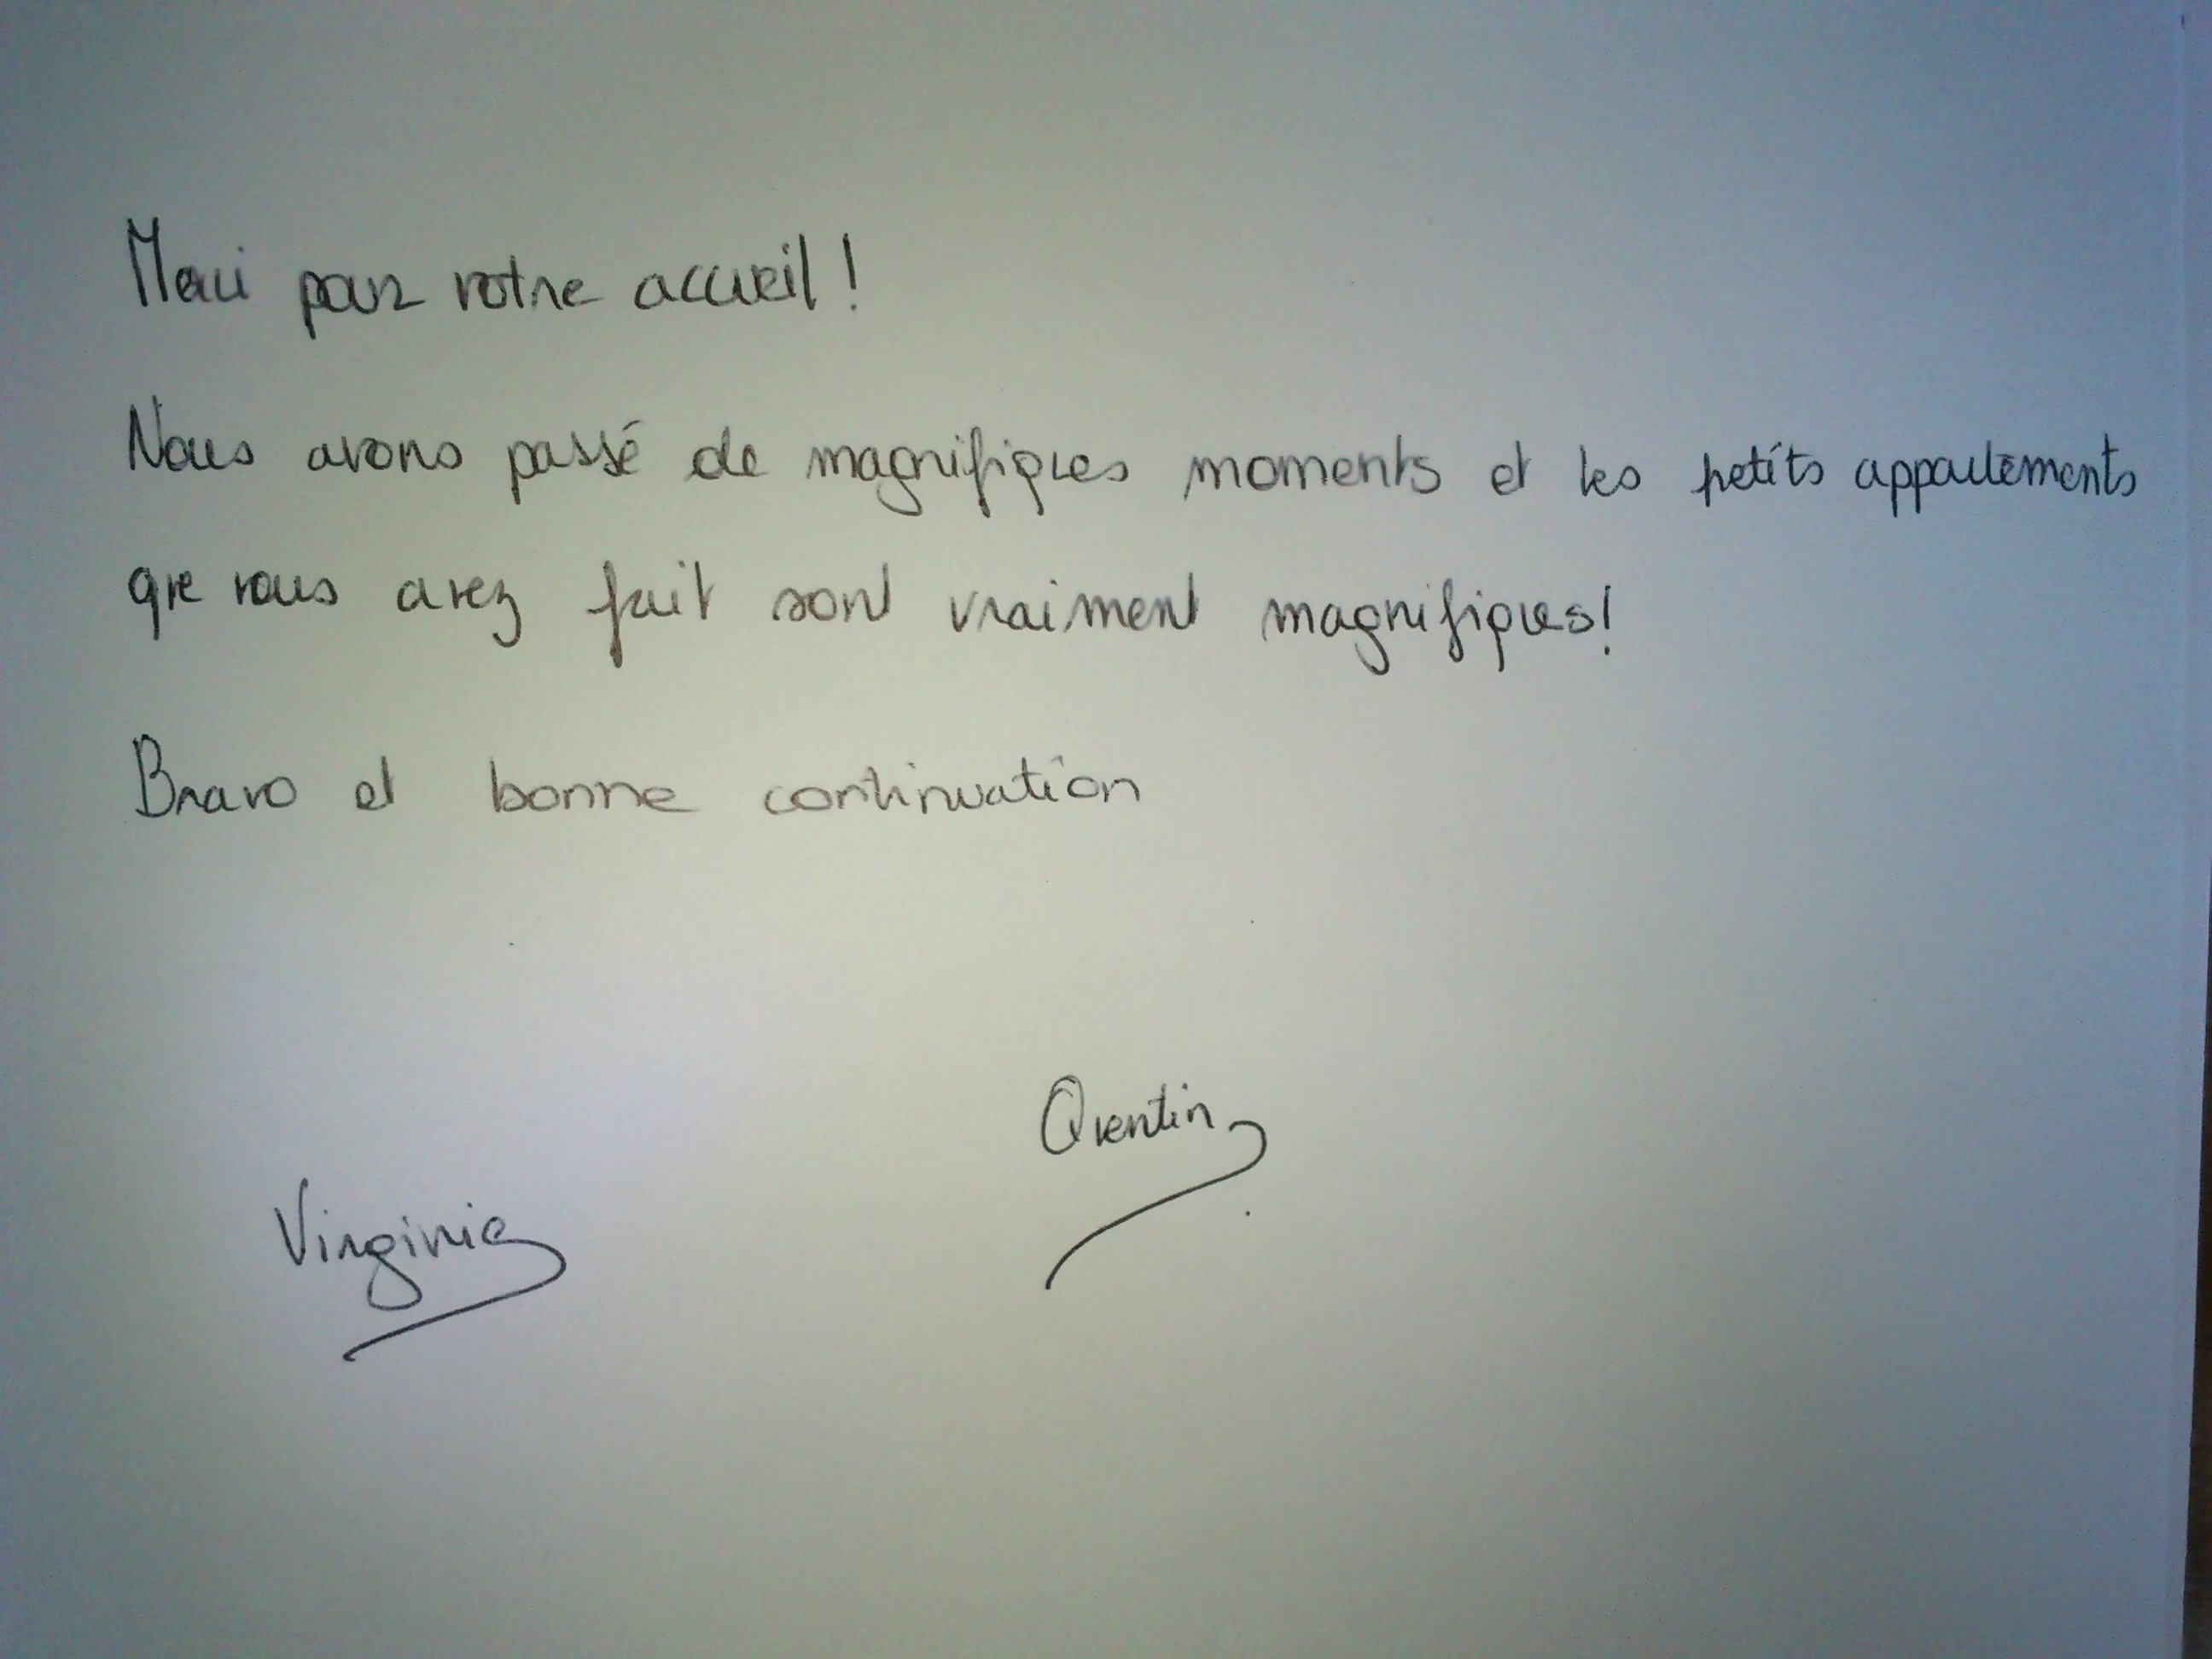 Merci pour votre accueil !
Nous avons passé de magnifiques moments et les petits appartements
que vous avez fait sont vraiment magnifiques!
Bravo et bonne continuation
Quentin
Virginie